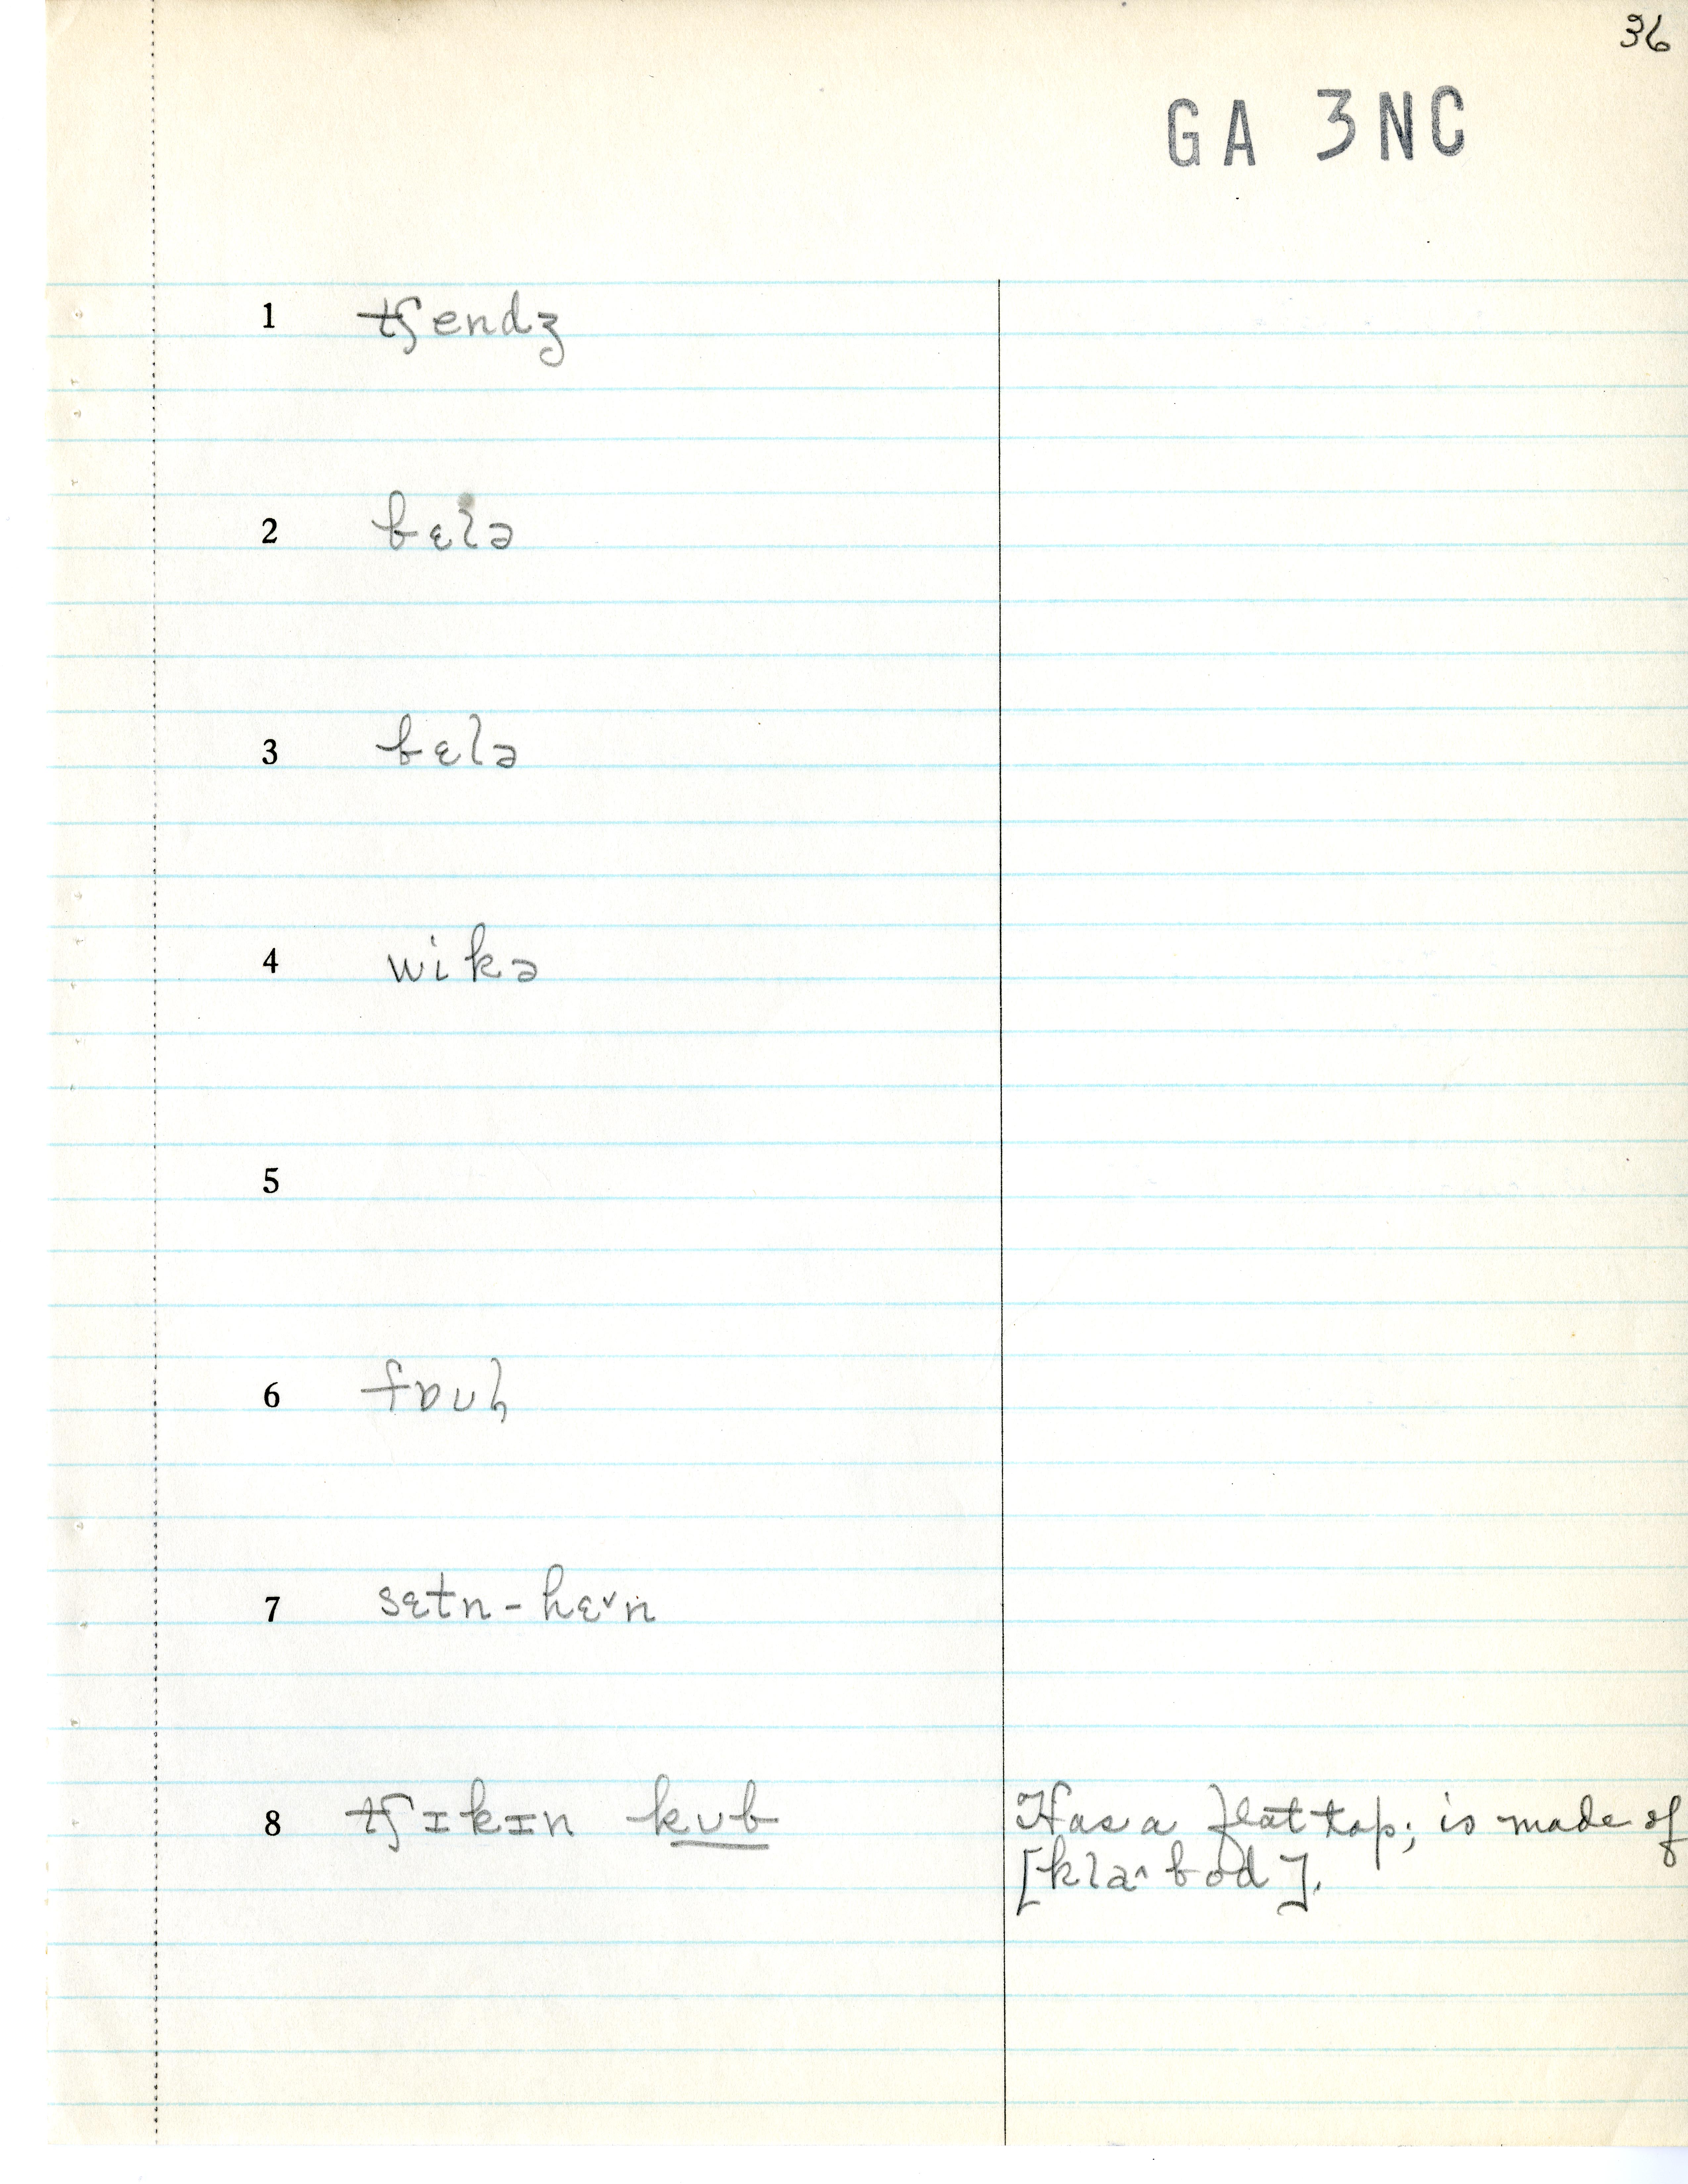 36
GA 3NC
1 tʃendʒ
2 bɛlə
3 bɛlə
4 wikə
5
6 fɒuɦ
7 sɛtn - hɛ˅n
8 tʃɪkɪn kub Has a flat top; is made of
[kla^bod].